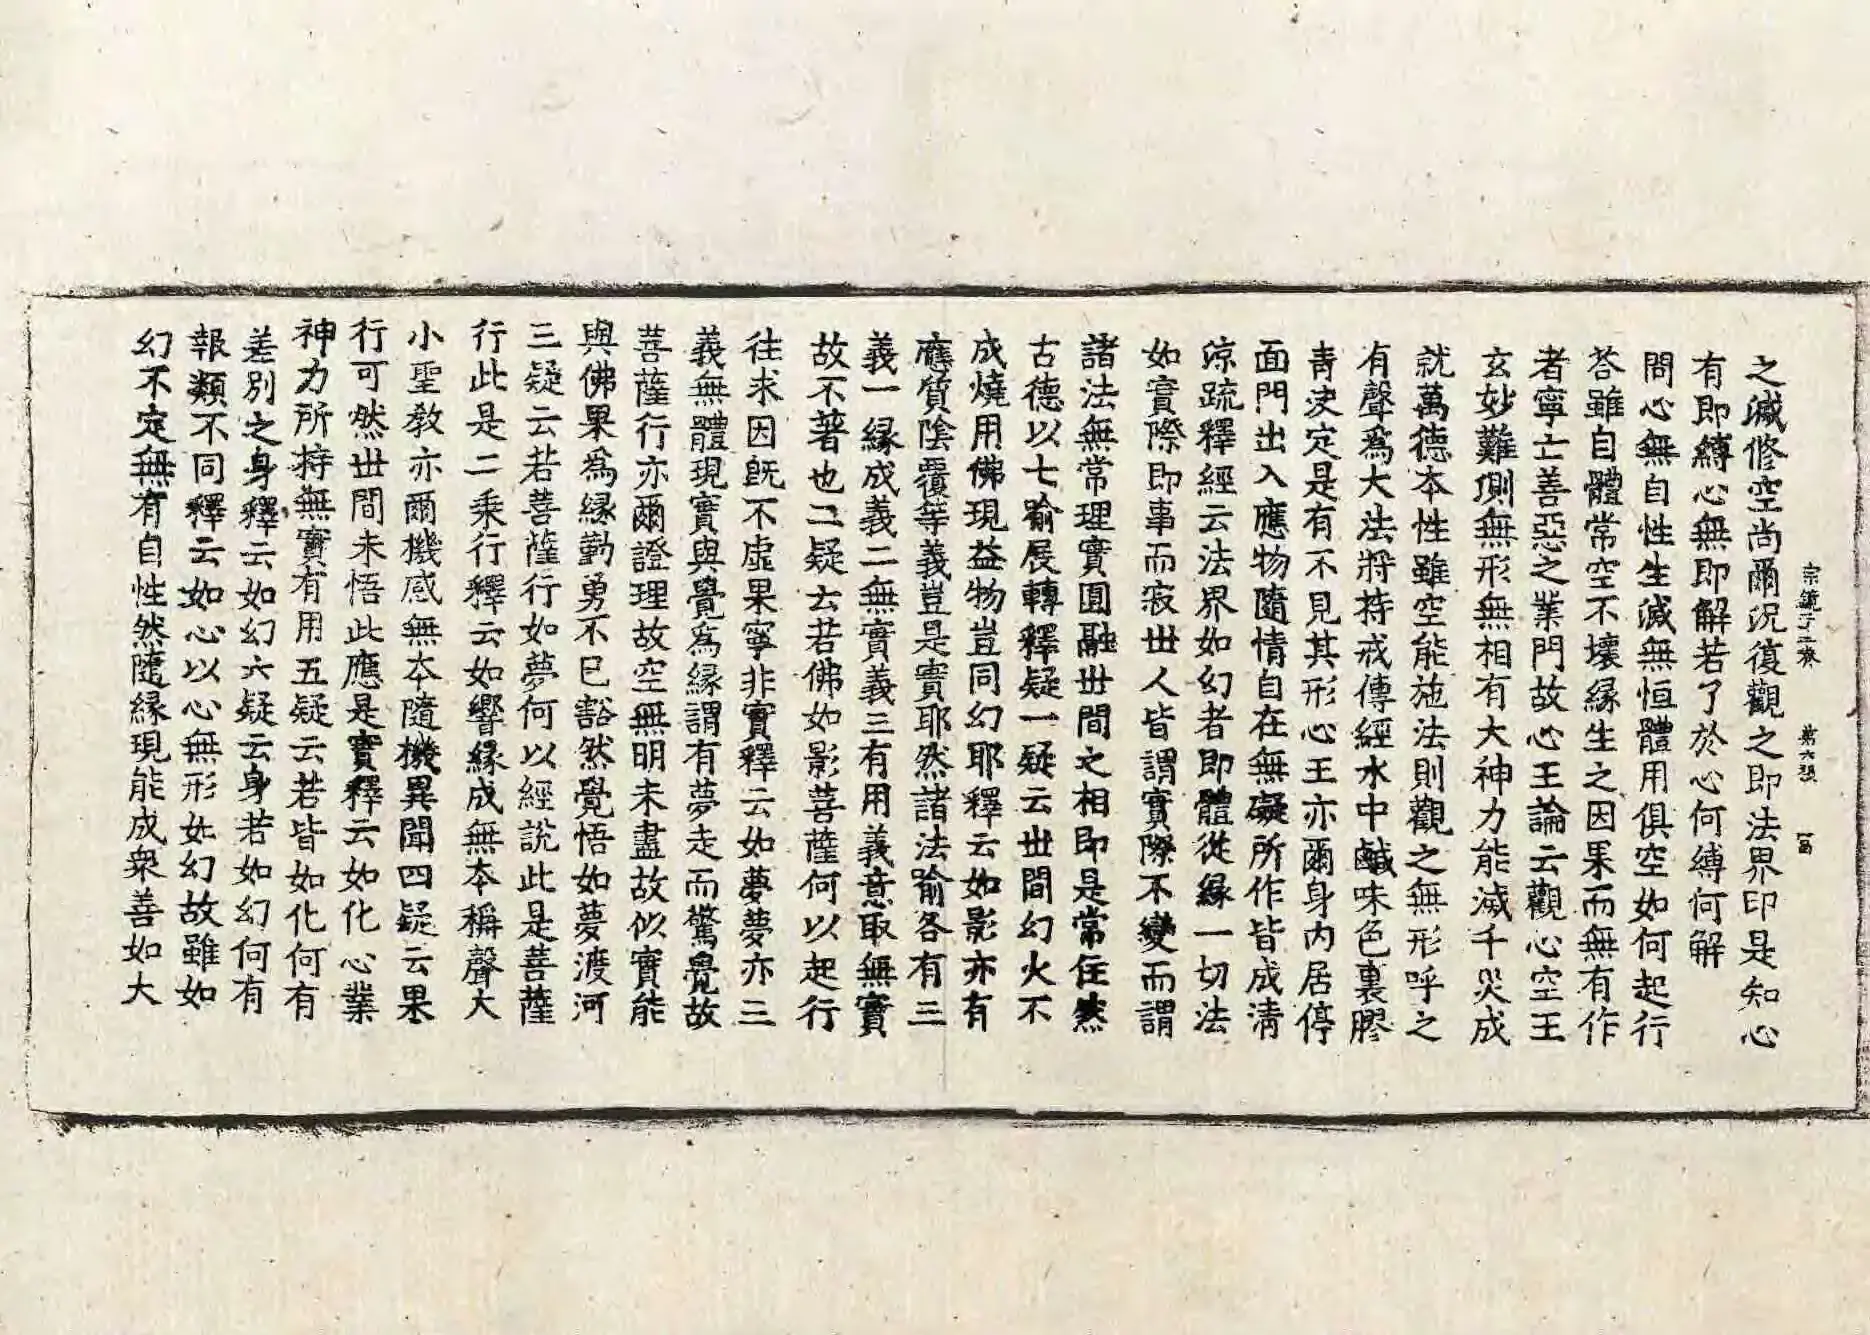 宗鏡 第六張
之減修空尚爾況復觀之即法界印是知心
有即縛心無即解若了於心何縛何解
問心無自性生滅無恒體用俱空如何起行
荅雖自體常空不壞緣生之因果而無有作
者寧亡善惡之業門故心王論云觀心空王
玄妙難測無形無相有大神力能滅千災成
就萬德本性雖空能施法則觀之無形呼之
有聲爲大法將持戒傳經水中鹹味色裏膠
青決定是有不見其形心王亦爾身內居停
面門出入應物隨情自在無礙所作皆成清
涼疏釋經云法界如幻者即體從緣一切法
如實際即事而寂世人皆謂實際不變而謂
諸法無常理實圓融世間之相即是常住然
古德以七喻展轉釋疑一疑云世間幻火不
成燒用佛現益物豈同幻耶釋云如影亦有
應質陰覆等義豈是實耶然諸法喻各有三
義一緣成義二無實義三有用義意取無實
故不著也二疑云若佛如影菩薩何以起行
往求因旣不虛果寧非實釋云如夢夢亦三
義無體現實與覺爲緣謂有夢走而驚覺故
菩薩行亦爾證理故空無明未盡故似實能
與佛果爲緣勤勇不已豁然覺悟如夢渡河
三疑云若菩薩行如夢何以經說此是菩薩
行此是二乘行釋云如響緣成無本稱聲大
小聖教亦爾機感無本隨機異聞四疑云果
行可然世間未悟此應是實釋云如化心業
神力所持無實有用五疑云若皆如化何有
差別之身釋云如幻六疑云身若如幻何有
報類不同釋云如心以心無形如幻故雖如
幻不定無有自性然隨緣現能成衆善如大